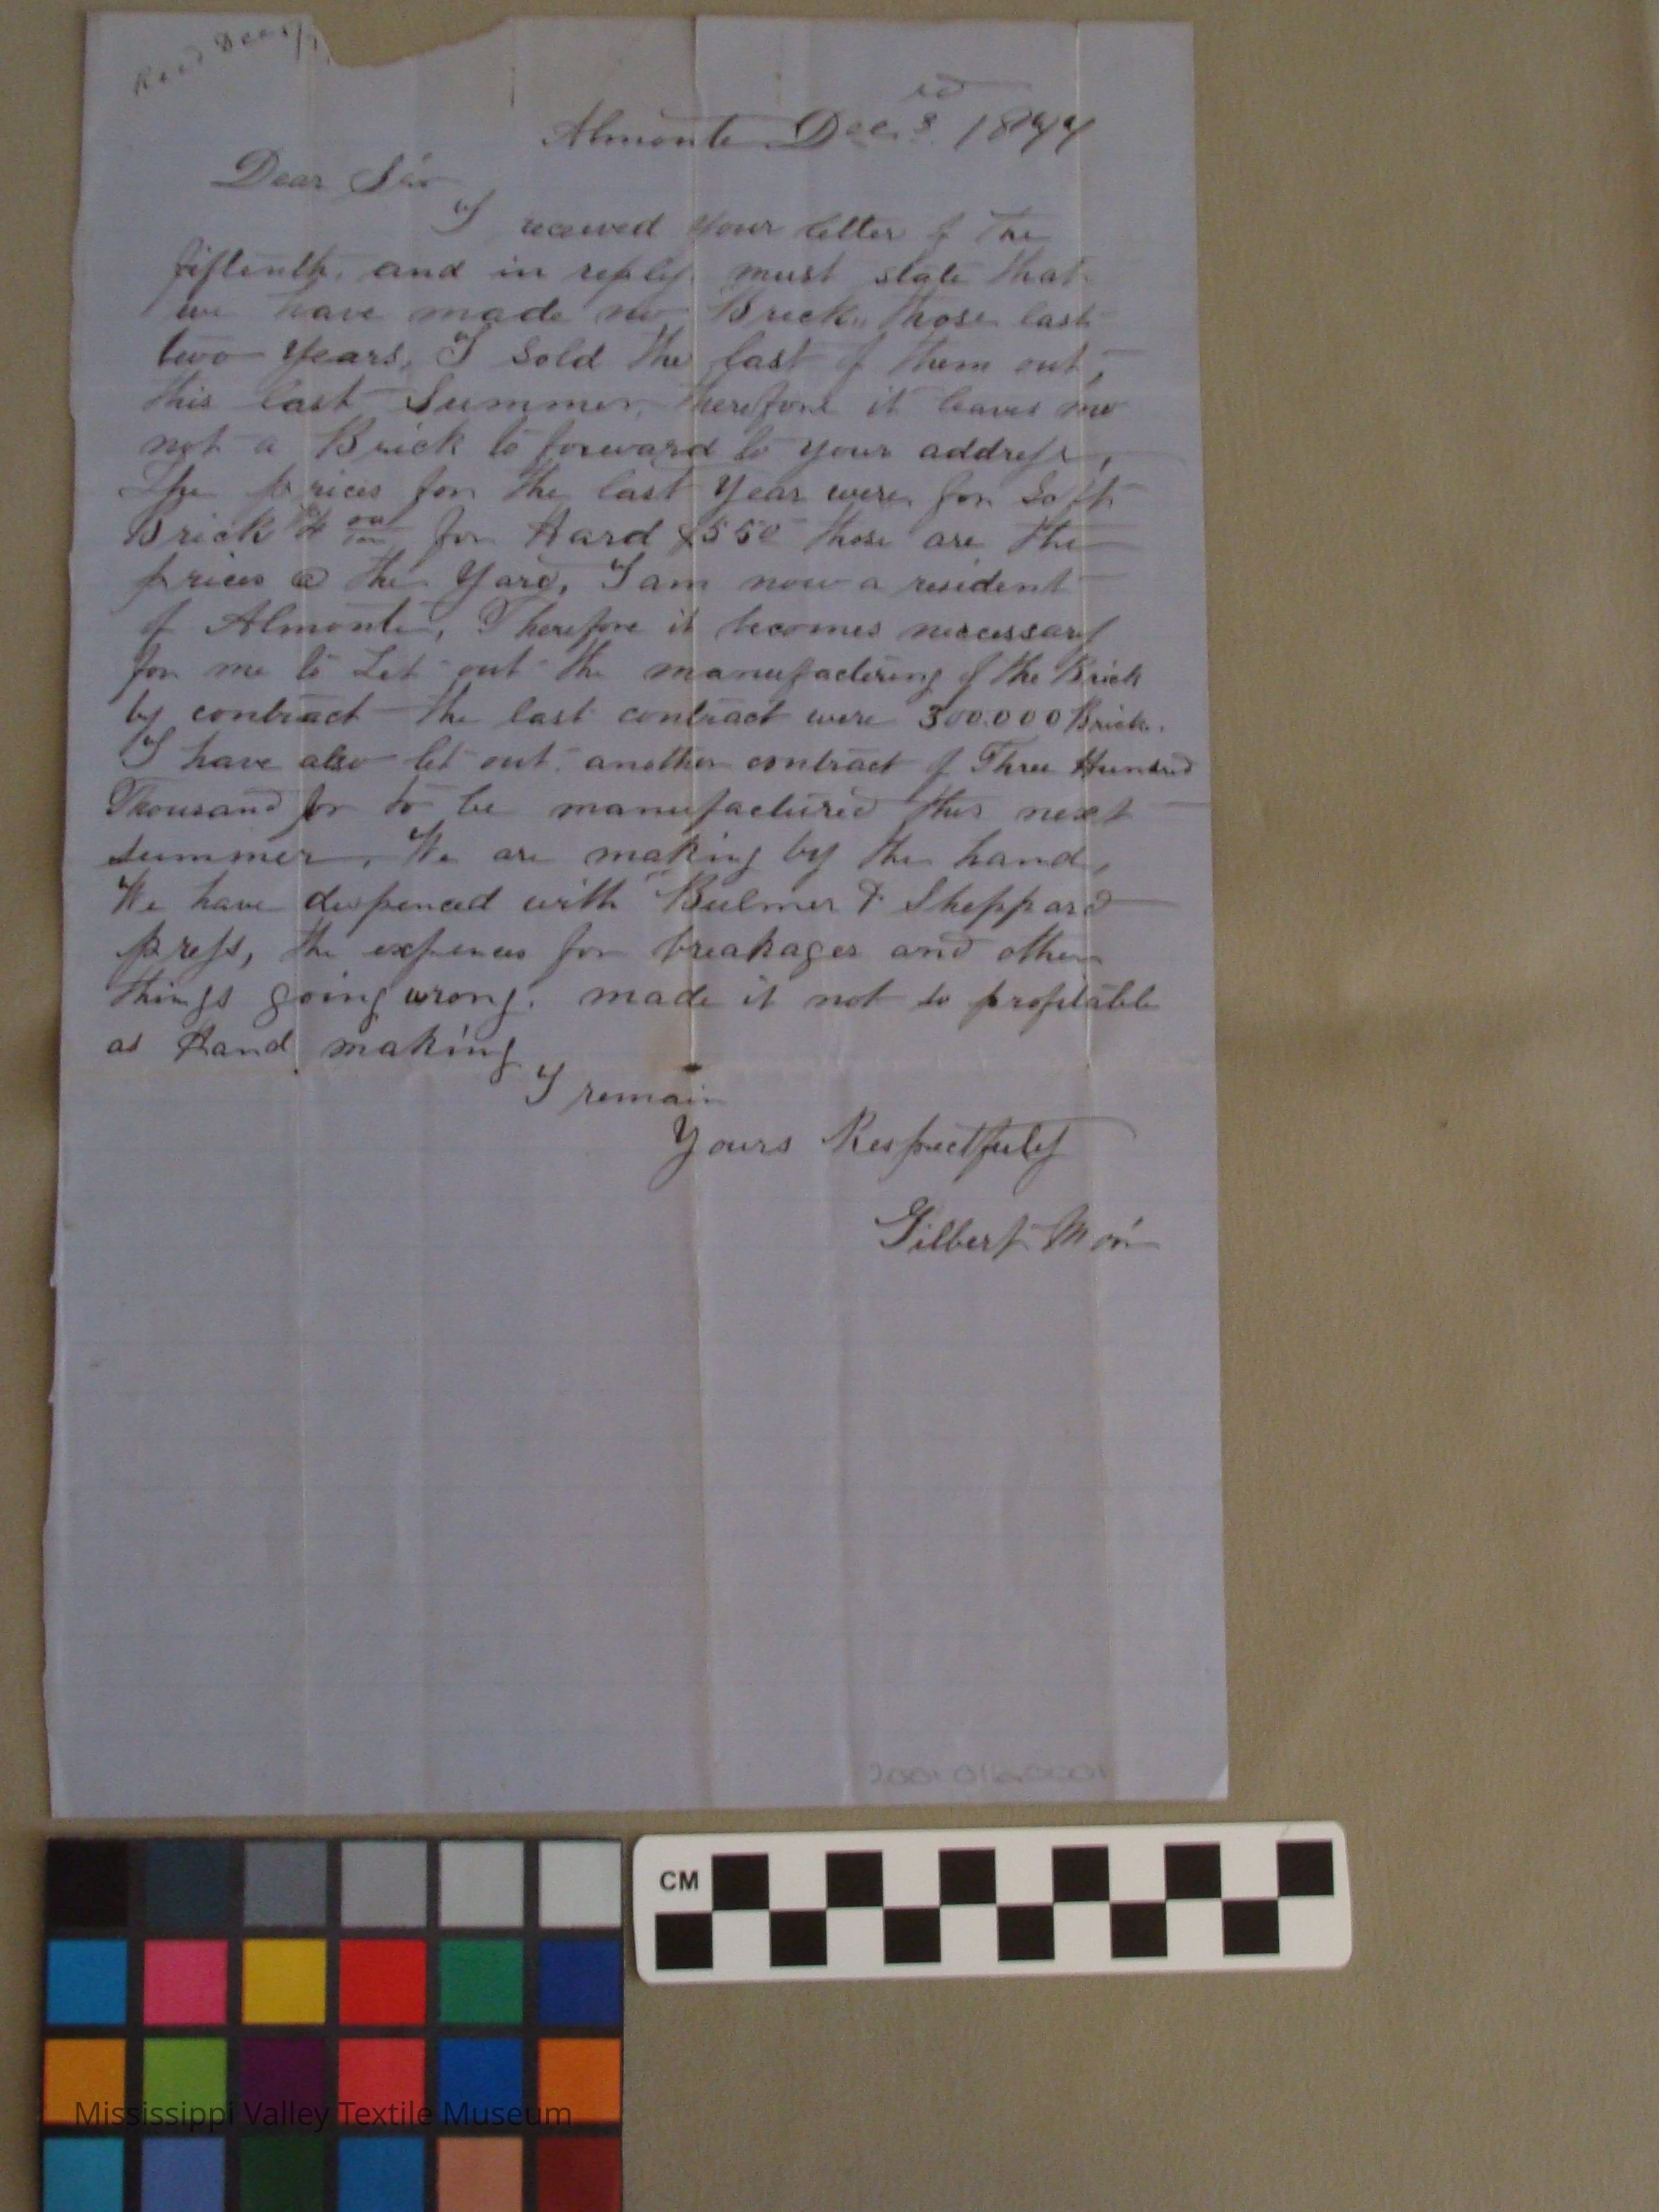 Recd Dec
Almonte Dec 3rd 1877
Dear Sir
I received your letter of the
fifteenth. and in reply. must state that
we have made no Brick, those last
two years, I sold the last of them out,
this last Summer, therefore it leaves me
not a Brick to forward to your address,
The prices for the last Year were, for Soft
Brick $4 00/100 for Hard $550 those are the
prices @ the Yard, I am now a resident
of Almonte, Therefore it becomes necessary
for me to Let out the manufactering of the Brick
by contract the last contract were 300.000 Brick.
I have also let out another contract of Three Hundred
Thousand for to be manufactured this next
summer, We are making by the hand,
We have dispenced with "Bulmer & Sheppard
press, the expences for breakages and other
things going wrong. made it not so profitable
as Hand making
I remain
Yours Respectfuly
Gilbert
CM
Mississippi Valley Textile Museum